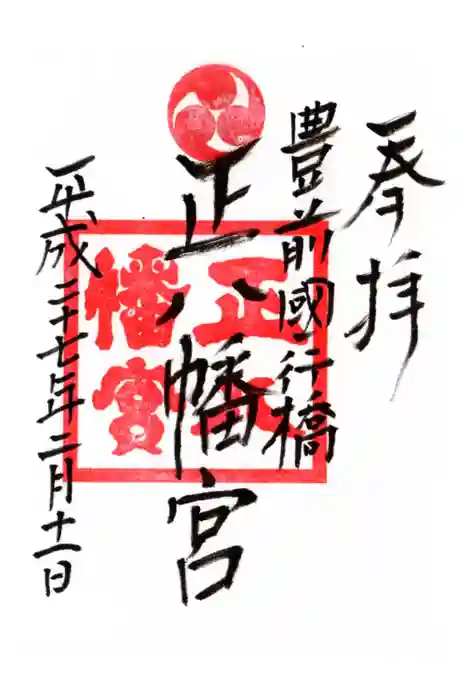 奉拝
豊前國行橋
正八幡宮
平成二十七年二月十一日
正八
幡宮